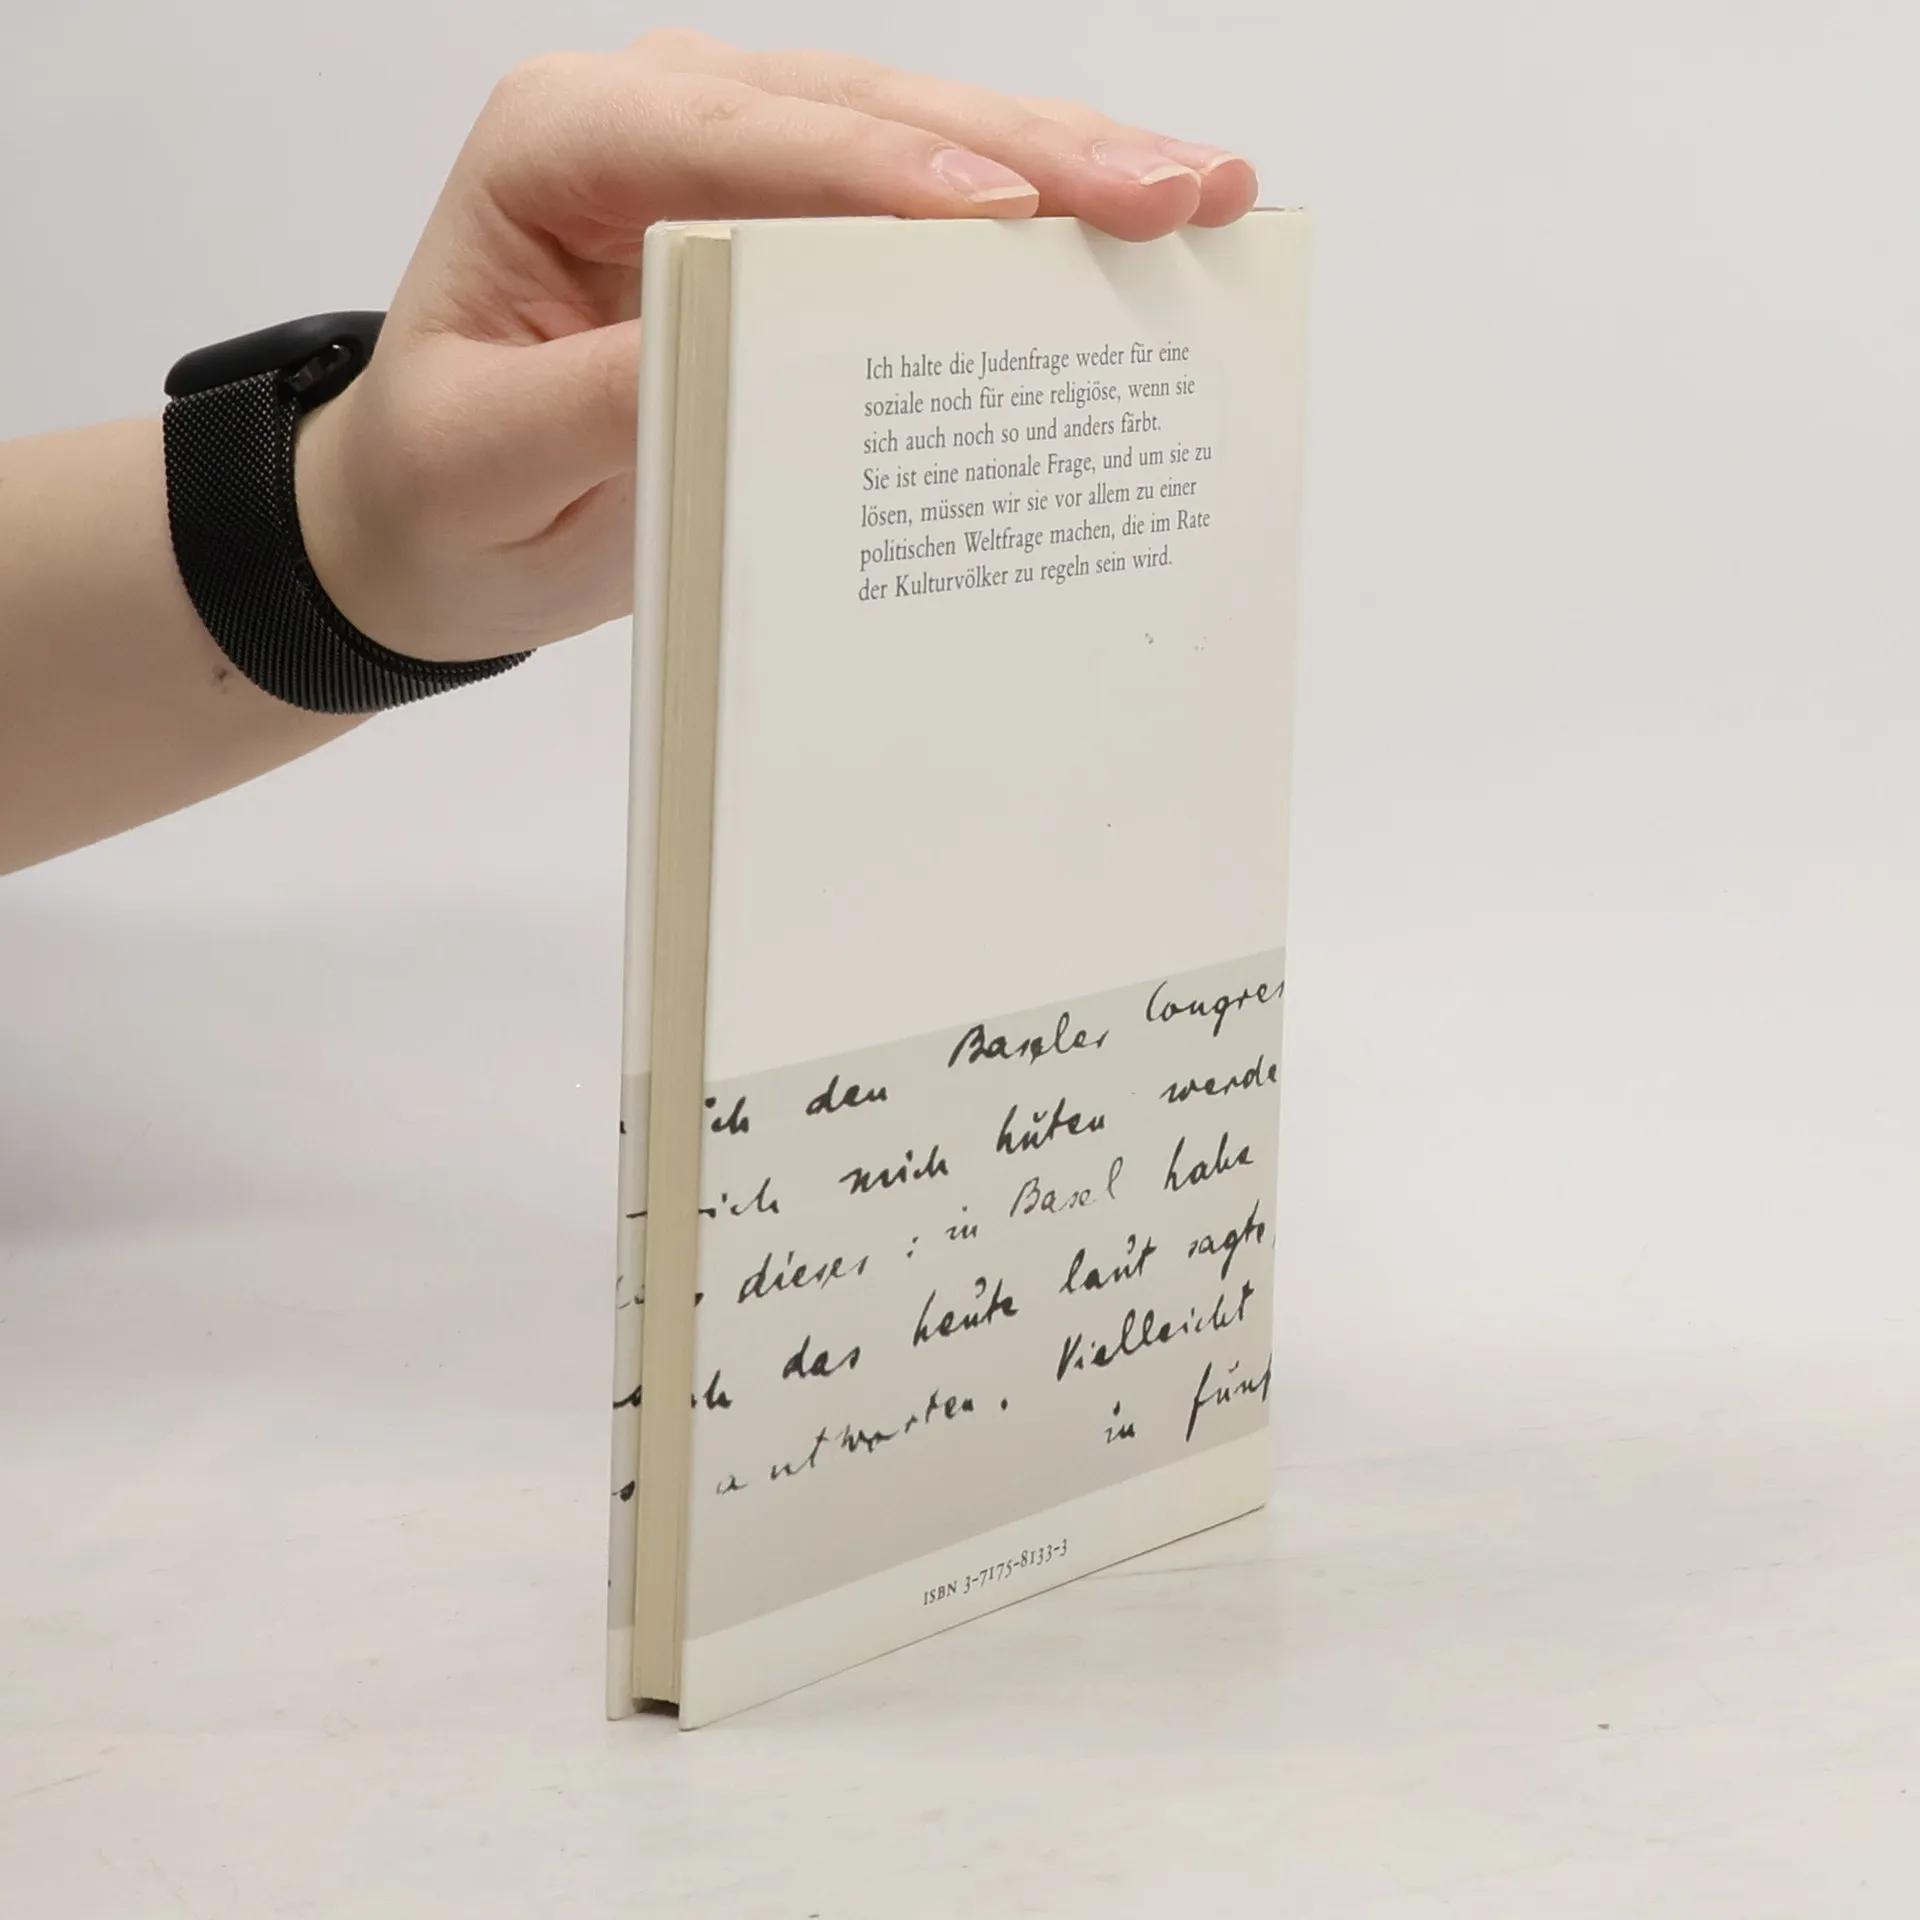 Ich halte die Judenfrage weder für eine
soziale noch für eine religiöse, wenn sie
sich auch noch so und anders färbt.
Sie ist eine nationale Frage, und um sie zu
lösen, müssen wir sie vor allem zu einer
politischen Weltfrage machen, die im Rate
der Kulturvölker zu regeln sein wird.
ich den Baseler Congres
ich mich hüten werde
dieses: in Basel habe
ich das heute laut sagte,
antworten. Vielleicht
in fünf
ISBN 3-7175-8133-3